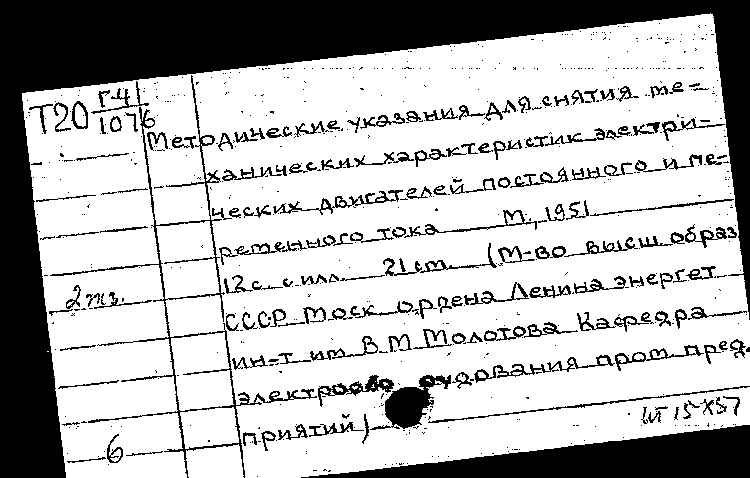 Т20 Г-41
1076
Методические указания для снятия ме=
ханических характеристик электри-
ческих двигателей постоянного и пе-
ременного тока М., 1951
12 с. с илл. 21 см. (М-во высш образ
2 экз.
СССР Моск ордена Ленина энергет
ин-т им В М Молотова Кафедра
электрообо рудования пром пред.
приятий)
6